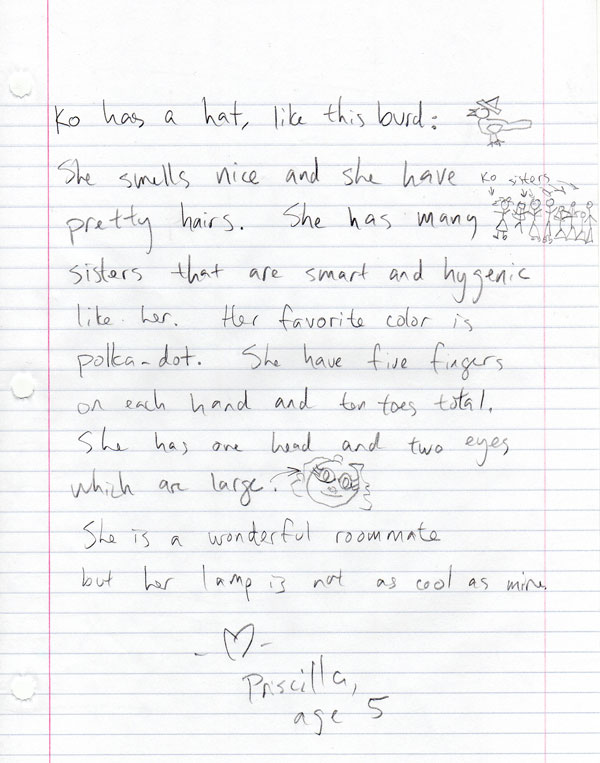 Ko has a hat, like this burd:
She smells nice and she have
Ko sisters
pretty hairs. She has many
sisters that are smart and hygenic
like her. Her favorite color is
polka-dot. She have five fingers
on each hand and ten toes total.
She has one head and two eyes
which are large.
She is a wonderful roommate
but her lamp is not as cool as mine.
Priscilla,
age 5